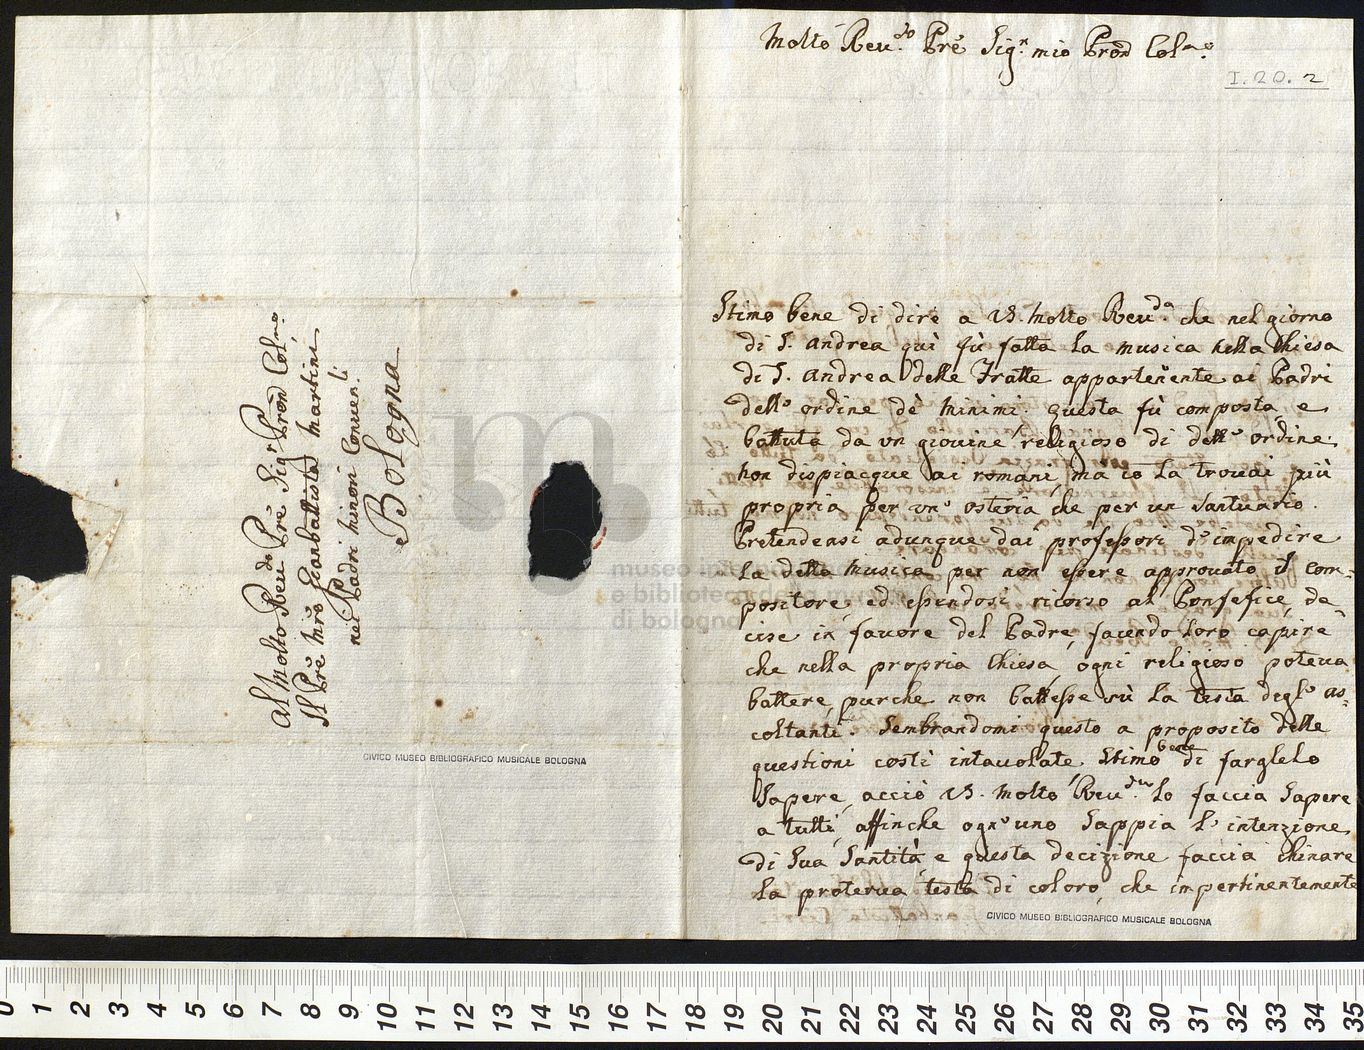 Al Molto Reu.do Prẽ Sig.r Pron̄ Col.mo
Il Prẽ Mr̃o Gianbattista Martini
nei Padri Minori Conuen.li
Bologna
CIVICO MUSEO BIBLIOGRAFICO MUSICALE BOLOGNA
Molto Reu.do Prẽ Sig.r mio Pron̄ Col.mo
I. 20. 2
Stimo bene di dire a V.S. Molto Reu.da che nel giorno
di S. Andrea quì fù fatta la musica nella Chiesa
di S. Andrea delle Fratte appartenente ai Padri
dell'ordine dè Minimi. questa fù composta, e
battuta da un giouine religioso di dett'ordine;
non dispiacque ai romani, ma io la trouai più
propria per un'osteria, che per un Santuario.
Pretendeasi adunque dai professori d'impedire
la detta musica per non essere approuato il com-
positore, ed essendosi ricorso al Pontefice, de-
cise in fauore del Padre, facendo loro capire
che nella propria Chiesa, ogni religioso poteua
battere, purche non battesse sù la testa degl'as-
coltanti. Sembrandomi questo a proposito delle
questioni costì intauolate stimo bene di farglelo
sapere, acciò V.S. Molto Reu.da lo faccia sapere
a tutti, affinche ogn'uno sappia l'intenzione
di Sua Santità e questa decizione faccia chinare
la proterua testa di coloro, che impertinentemente
CIVICO MUSEO BIBLIOGRAFICO MUSICALE BOLOGNA
museo internazionale
e biblioteca della musica
di bologna
0 1 2 3 4 5 6 7 8 9 10 11 12 13 14 15 16 17 18 19 20 21 22 23 24 25 26 27 28 29 30 31 32 33 34 35